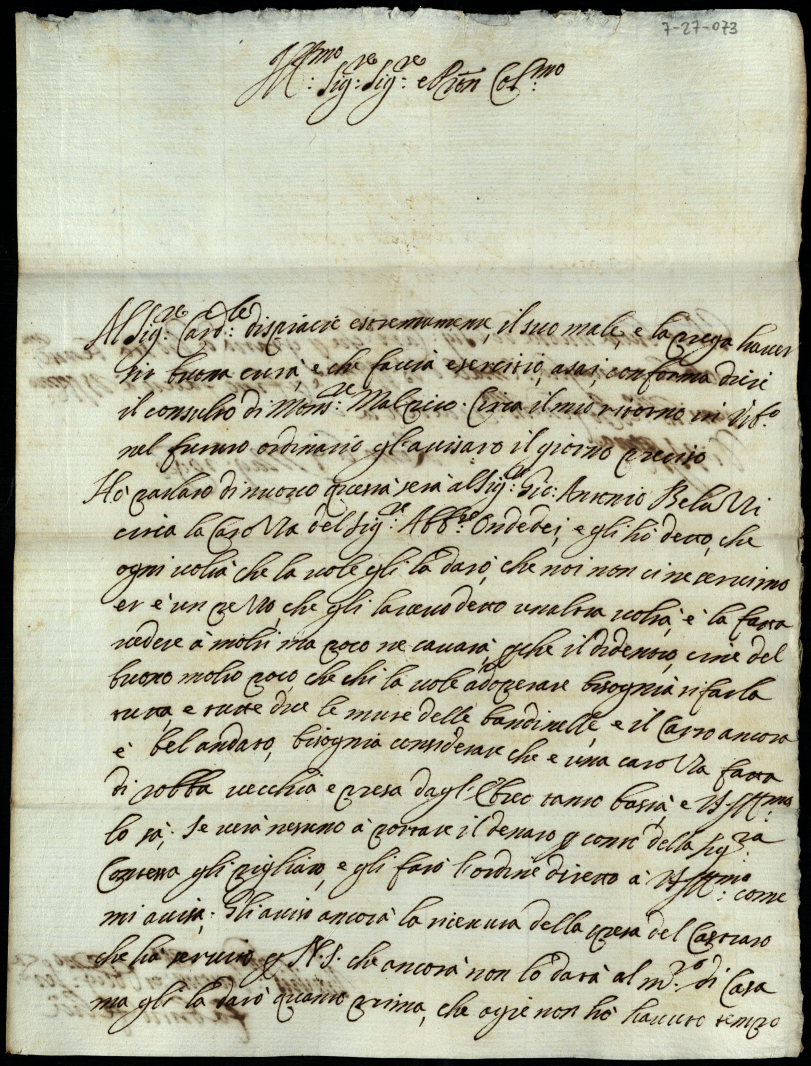 7-27-073
Ill:mo Sig:re Sig:re e P'ron Col:mo
Al Sig:re Card:le dispiacie estremamente, il suo male, e la prega haver
ne buona cura, e che faccia esercitio, asai, conforma dice
il consulto di Mons:re Malpico. Circa il mio ritorno in Urb:o
nel futuro ordinario gl'avisarò il giorno preciso
Hò parlato di nuovo questa sera al Sig:re Gio: Antonio Belucci
circa la Carozza del Sig:re Abb:e Ondedei, e gli hò detto, che
ogni volta che la vole gli la darò, che noi non ci ne serviamo
et è un pezzo, che gli lavevo detto unaltra volta, e la fatta
vedere à molti ma poco ne cavarà, p che il didentro, cine del
buono molto poco, che chi la vole adoperare bisognia rifarla
tutta, e tutte due le mute delle bandinelle, e il Carro ancora
è bel andato, bisognia considerare che e una carozza fatta
di robba vecchia e presa dagl'Ebreo tanto bassa, e VS Ill:ma
lo sà; Se verà nessuno à portare il denaro p conto della Sig:ra
Contessa gli pigliaro, e gli farò l'ordine diretto à VS Ill:ma come
mi avisa; Gli aviso ancora la ricevuta della spesa del Castraro
che hà servito p N. S. che ancora non lo data al m:ro di Casa
ma gli la darò quanto prima, che ogie non hò havuto tempo